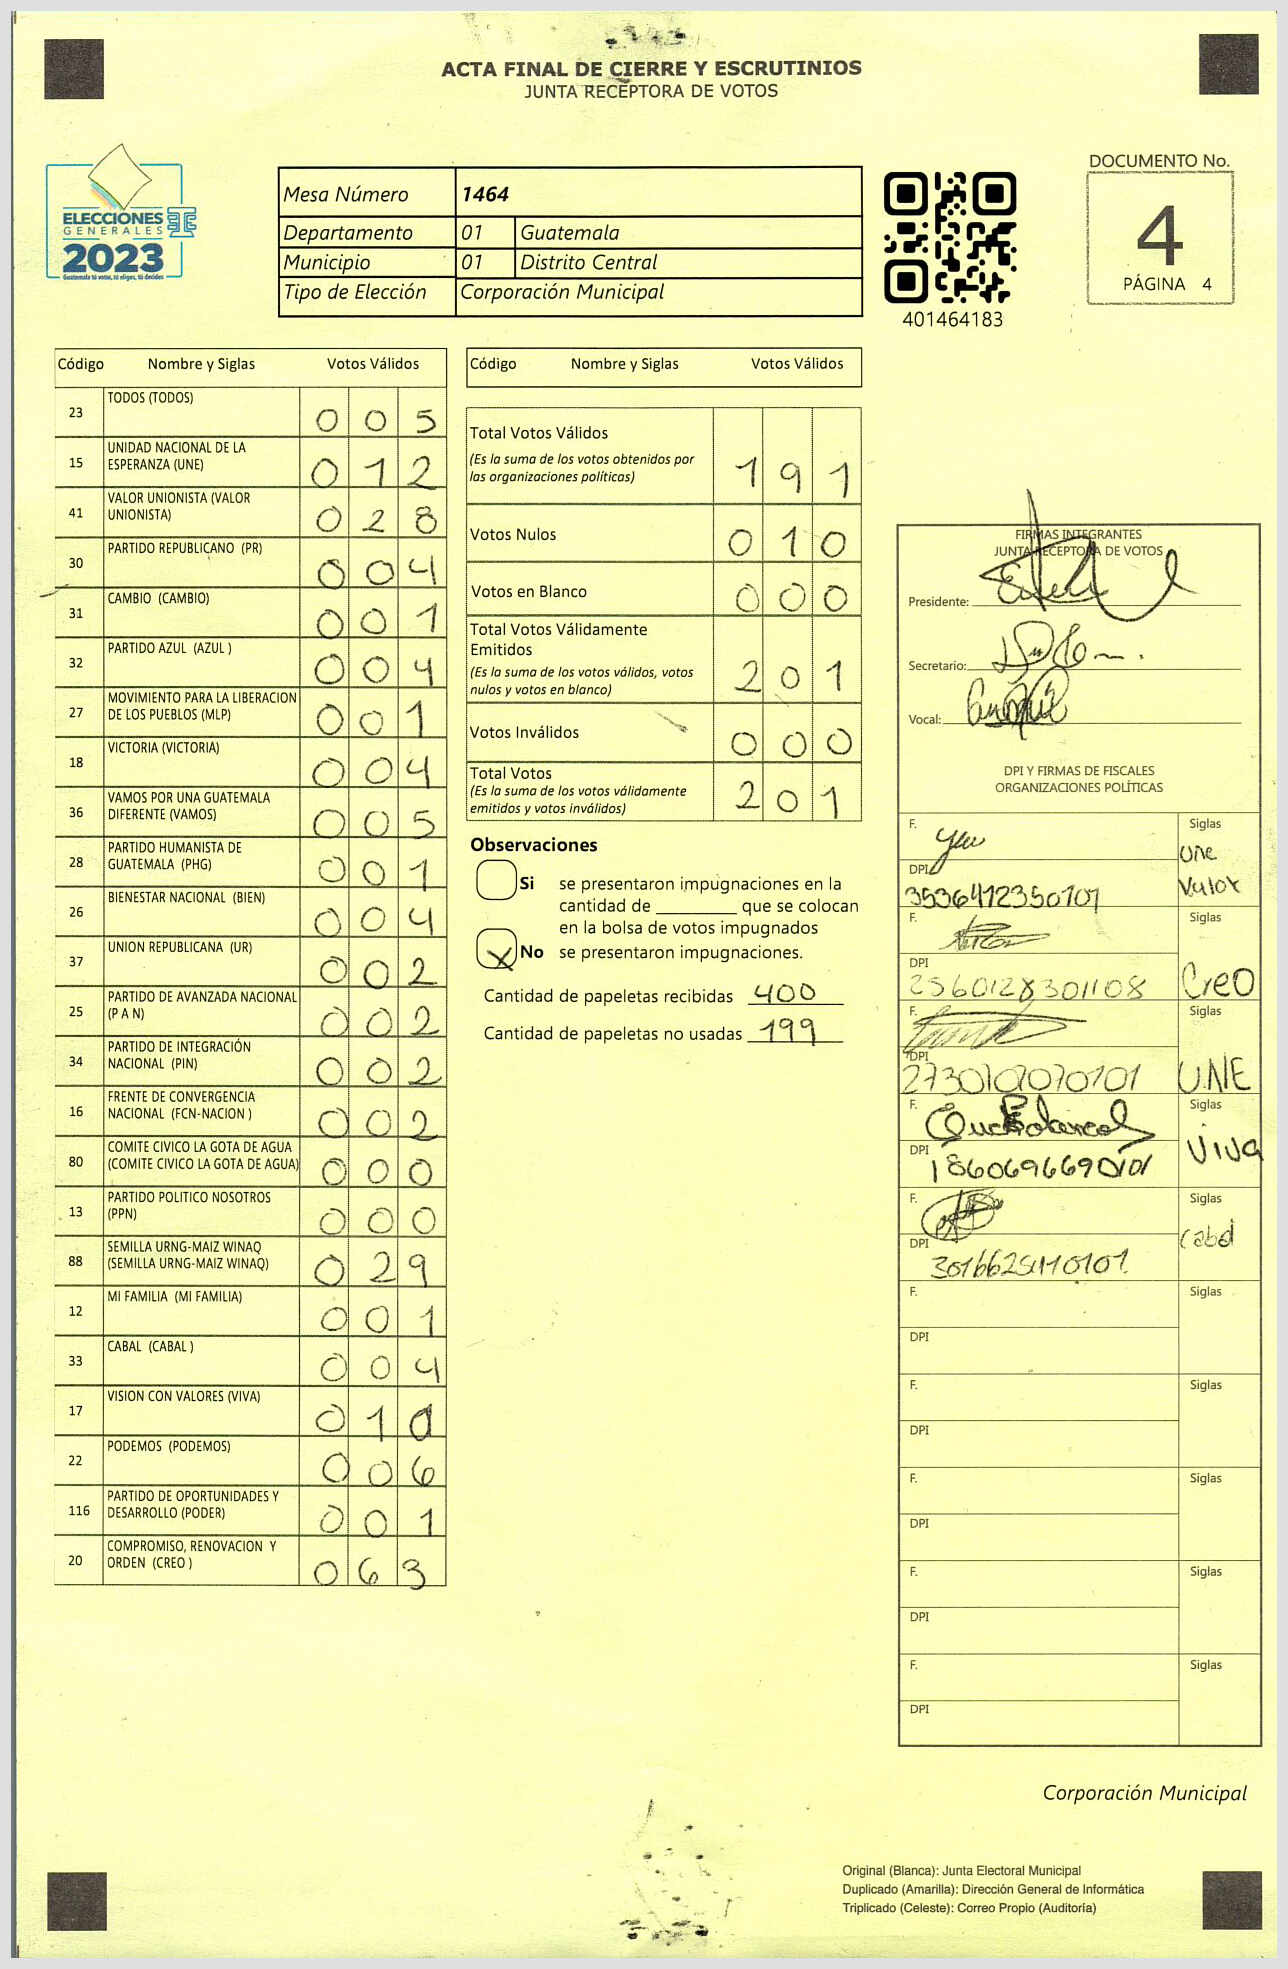 ACTA FINAL DE CIERRE Y ESCRUTINIOS
JUNTA RECEPTORA DE VOTOS
ELECCIONES
GENERALES
2023
Guatemala tú votas, tú eliges, tú decides
Mesa Número 1464
Departamento 01 Guatemala
Municipio 01 Distrito Central
Tipo de Elección Corporación Municipal
401464183
DOCUMENTO No.
4
PÁGINA 4
Código Nombre y Siglas Votos Válidos
23 TODOS (TODOS) 0 0 5
15 UNIDAD NACIONAL DE LA ESPERANZA (UNE) 0 1 2
41 VALOR UNIONISTA (VALOR UNIONISTA) 0 2 8
30 PARTIDO REPUBLICANO (PR) 0 0 4
31 CAMBIO (CAMBIO) 0 0 1
32 PARTIDO AZUL (AZUL ) 0 0 4
27 MOVIMIENTO PARA LA LIBERACION DE LOS PUEBLOS (MLP) 0 0 1
18 VICTORIA (VICTORIA) 0 0 4
36 VAMOS POR UNA GUATEMALA DIFERENTE (VAMOS) 0 0 5
28 PARTIDO HUMANISTA DE GUATEMALA (PHG) 0 0 1
26 BIENESTAR NACIONAL (BIEN) 0 0 4
37 UNION REPUBLICANA (UR) 0 0 2
25 PARTIDO DE AVANZADA NACIONAL (P A N) 0 0 2
34 PARTIDO DE INTEGRACIÓN NACIONAL (PIN) 0 0 2
16 FRENTE DE CONVERGENCIA NACIONAL (FCN-NACION ) 0 0 2
80 COMITE CIVICO LA GOTA DE AGUA (COMITE CIVICO LA GOTA DE AGUA) 0 0 0
13 PARTIDO POLITICO NOSOTROS (PPN) 0 0 0
88 SEMILLA URNG-MAIZ WINAQ (SEMILLA URNG-MAIZ WINAQ) 0 2 9
12 MI FAMILIA (MI FAMILIA) 0 0 1
33 CABAL (CABAL ) 0 0 4
17 VISION CON VALORES (VIVA) 0 1 0
22 PODEMOS (PODEMOS) 0 0 6
116 PARTIDO DE OPORTUNIDADES Y DESARROLLO (PODER) 0 0 1
20 COMPROMISO, RENOVACION Y ORDEN (CREO ) 0 6 3
Código Nombre y Siglas Votos Válidos
Total Votos Válidos 1 9 1
(Es la suma de los votos obtenidos por
las organizaciones políticas)
Votos Nulos 0 1 0
Votos en Blanco 0 0 0
Total Votos Válidamente
Emitidos 2 0 1
(Es la suma de los votos válidos, votos
nulos y votos en blanco)
Votos Inválidos 0 0 0
Total Votos 2 0 1
(Es la suma de los votos válidamente
emitidos y votos inválidos)
Observaciones
Si se presentaron impugnaciones en la
cantidad de ________ que se colocan
en la bolsa de votos impugnados
X No se presentaron impugnaciones.
Cantidad de papeletas recibidas 400
Cantidad de papeletas no usadas 199
FIRMAS INTEGRANTES
JUNTA RECEPTORA DE VOTOS
Presidente:
Secretario:
Vocal:
DPI Y FIRMAS DE FISCALES
ORGANIZACIONES POLÍTICAS
F. Siglas
Une
Valor
DPI 3536412350101
F. Siglas
DPI 2560128301108 Creo
F. Siglas
DPI UNE
F. Siglas
DPI Viva
F. Siglas
DPI
F. Siglas
DPI
F. Siglas
DPI
F. Siglas
DPI
F. Siglas
DPI
F. Siglas
DPI
Corporación Municipal
Original (Blanca): Junta Electoral Municipal
Duplicado (Amarilla): Dirección General de Informática
Triplicado (Celeste): Correo Propio (Auditoría)